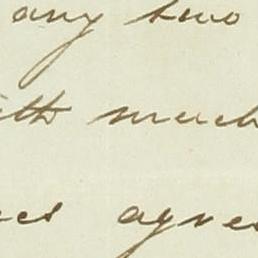 any two
ith much
es agree